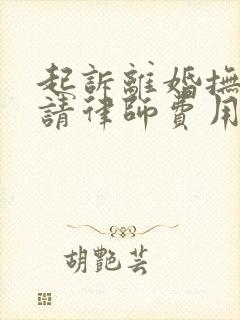 起訴離婚撫
請律師費用
胡艷芸